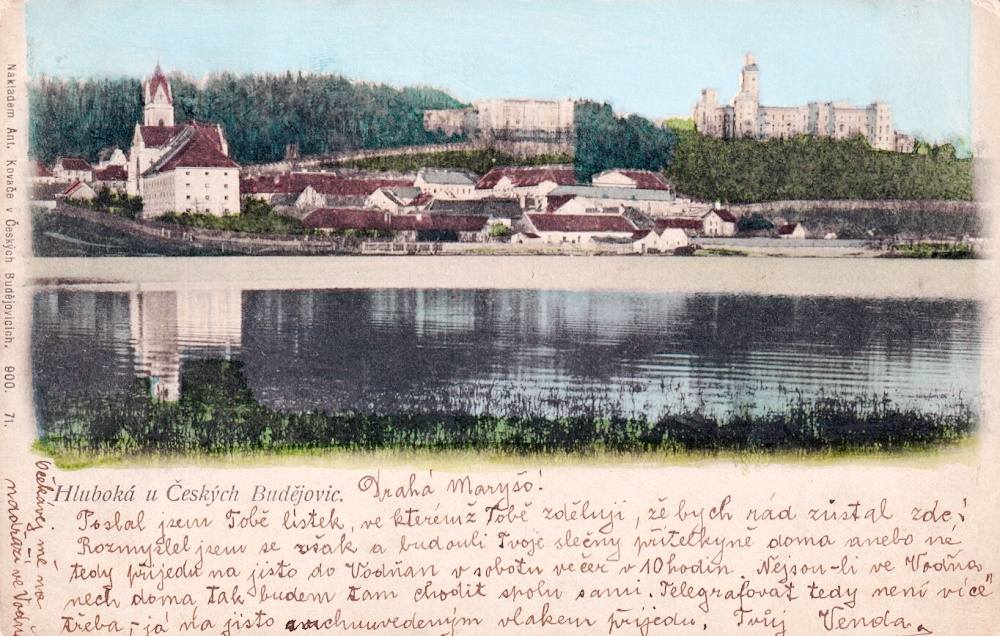 Nákladem Ant. Kovače v Českých Budějovicích, 900. 71.
Hluboká u Českých Budějovic.
Drahá Maryšo!
Poslal jsem Tobě lístek, ve kterémž Tobě zděluji, že bych rád zůstal zde,
Rozmyslel jsem se však a budouli Tvoje slečny přítelkyně doma anebo ne
tedy přijedu na jisto do Vodňan v sobotu večer v 10 hodin. Nejsou-li ve Vodňa-
nech doma, tak budem tam chodit spolu sami. Telegrafovat tedy není více
třeba, - já na jisto uvedeným vlakem přijedu. Tvůj Venda.
Očekávej mě na
nádraží ve